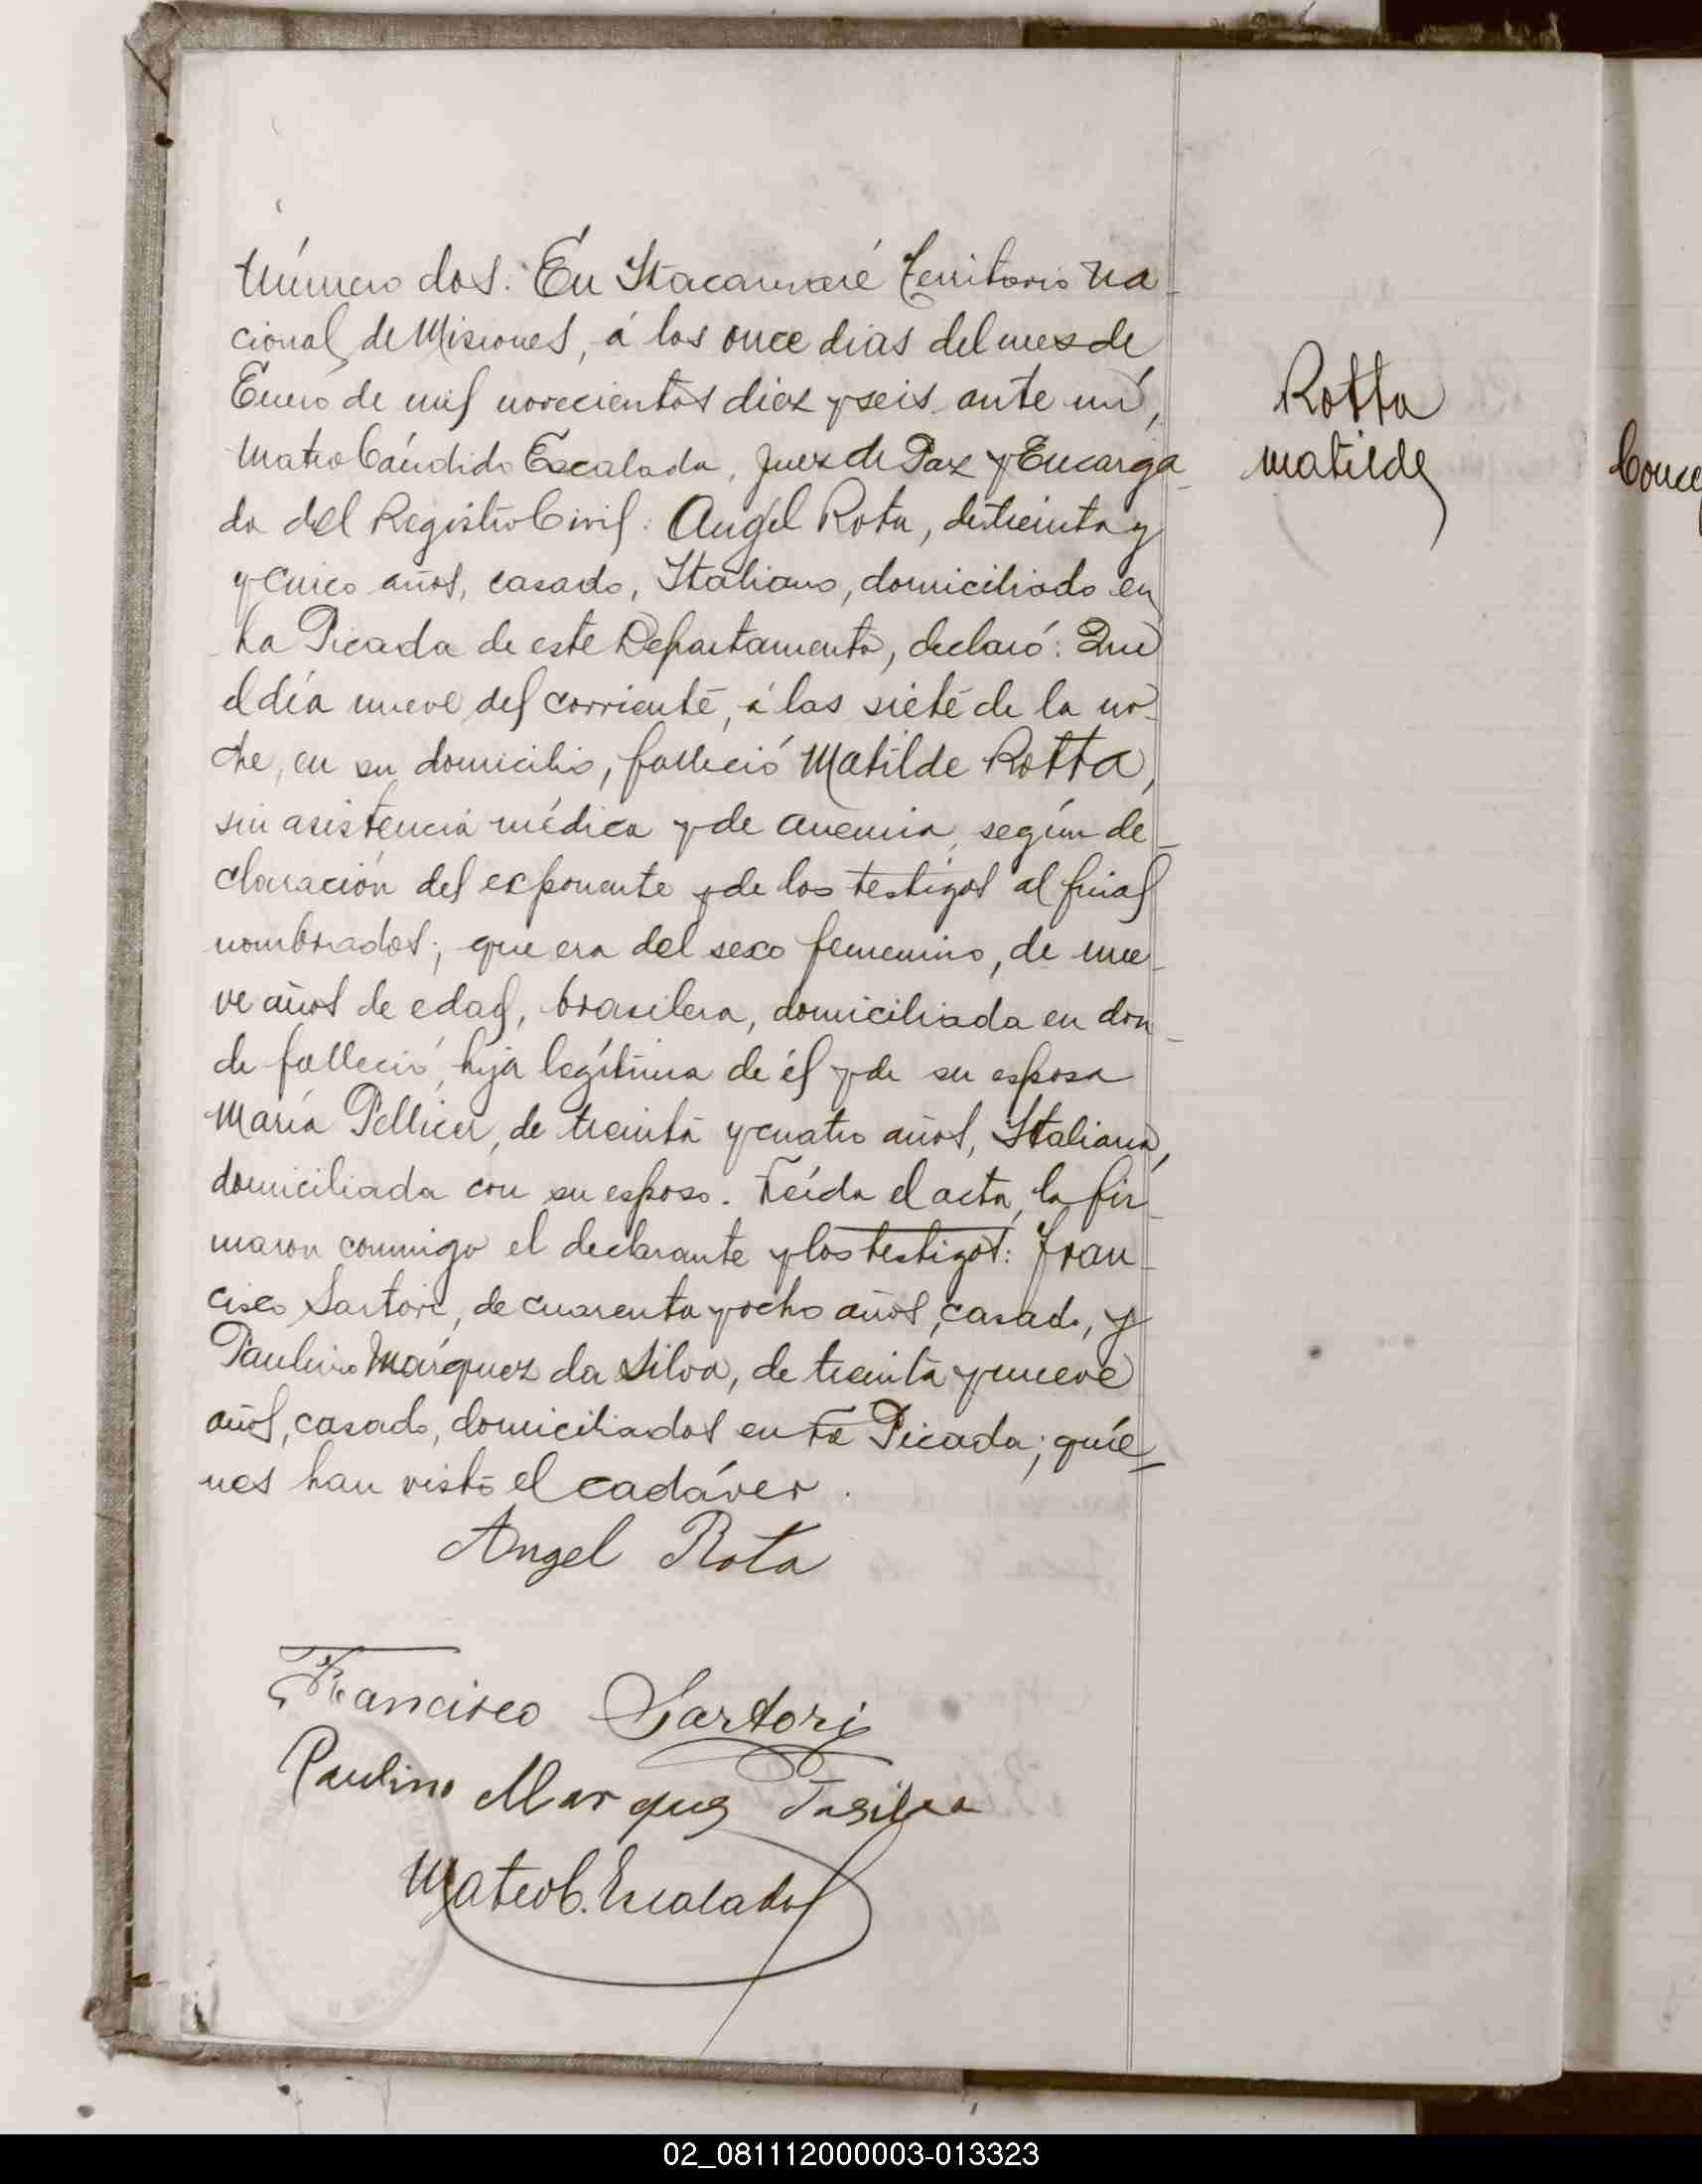 Número dos. En Itacaruaré Territorio Na-
cional de Misiones, á los once dias del mes de
Enero de mil novecientos diez y seis ante mí,
Mateo Cándido Escalada, Juez de Paz y Encarga-
do del Registro Civil: Angel Rota, de treinta y
y cinco años, casado, Italiano, domiciliado en
La Picada de este Departamento, declaró: Que
el día nueve del corriente, á las siete de la no-
che, en su domicilio, falleció Matilde Rotta,
sin asistencia médica y de anemia, según de-
claración del exponente y de los testigos al final
nombrados; que era del sexo femenino, de nue-
ve años de edad, brasilera, domiciliada en don-
de falleció, hija legítima de él y de su esposa
María Pellicer, de treinta y cuatro años, Italiana,
domiciliada con su esposo. Leída el acta, la fir-
maron conmigo el declarante y los testigos: Fran-
cisco Sartori, de cuarenta y ocho años, casado, y
Paulino Márquez da Silva, de treinta y nueve
años, casado, domiciliados en La Picada; quíe-
nes han visto el cadáver.
Angel Rota
Francisco Sartori
Paulino Marques Dasilva
Mateo C. Escalada
Rotta
Matilde
02_081112000003-013323